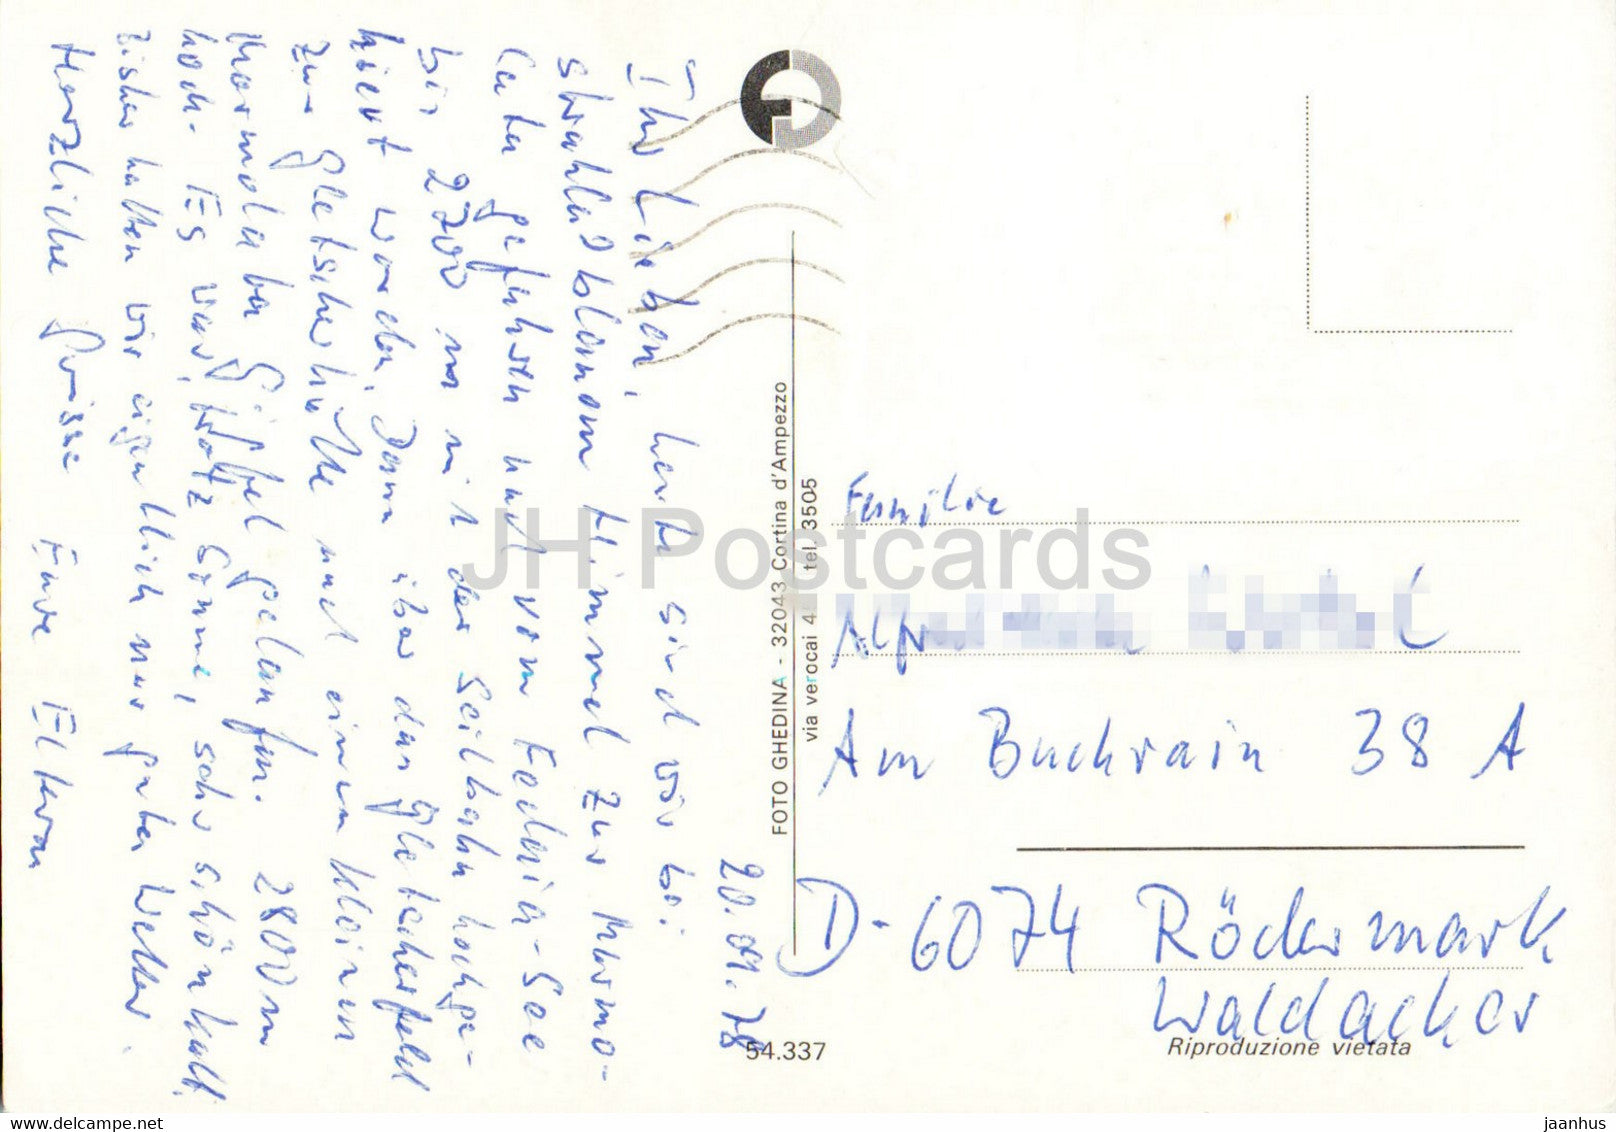 20.09.78
Ihr Lieben, heute sind wir bei
strahlendblauem Himmel zur Marmo-
lata gefahren und vom Fedaia-See
bis 2700 m mit der Seilbahn hochge-
hievt worden. Dann über das Gletscherfeld
zur Gletscherhütte und einen kleinen
Marmolata Gipfel gelaufen. 2800 m
hoch. Es war, trotz Sonne, sehr schön kalt.
Bisher hatten wir eigentlich nur gutes Wetter.
Herzliche Grüsse Eure Eltern
FOTO GHEDINA - 32043 Cortina d'Ampezzo
via verocai 4 tel. 3505
Familie
Am Buchrain 38 A
D-6074 Rödermark
Waldacker
54.337
Riproduzione vietata
JH Postcards
hippostcard.com
jaanhus